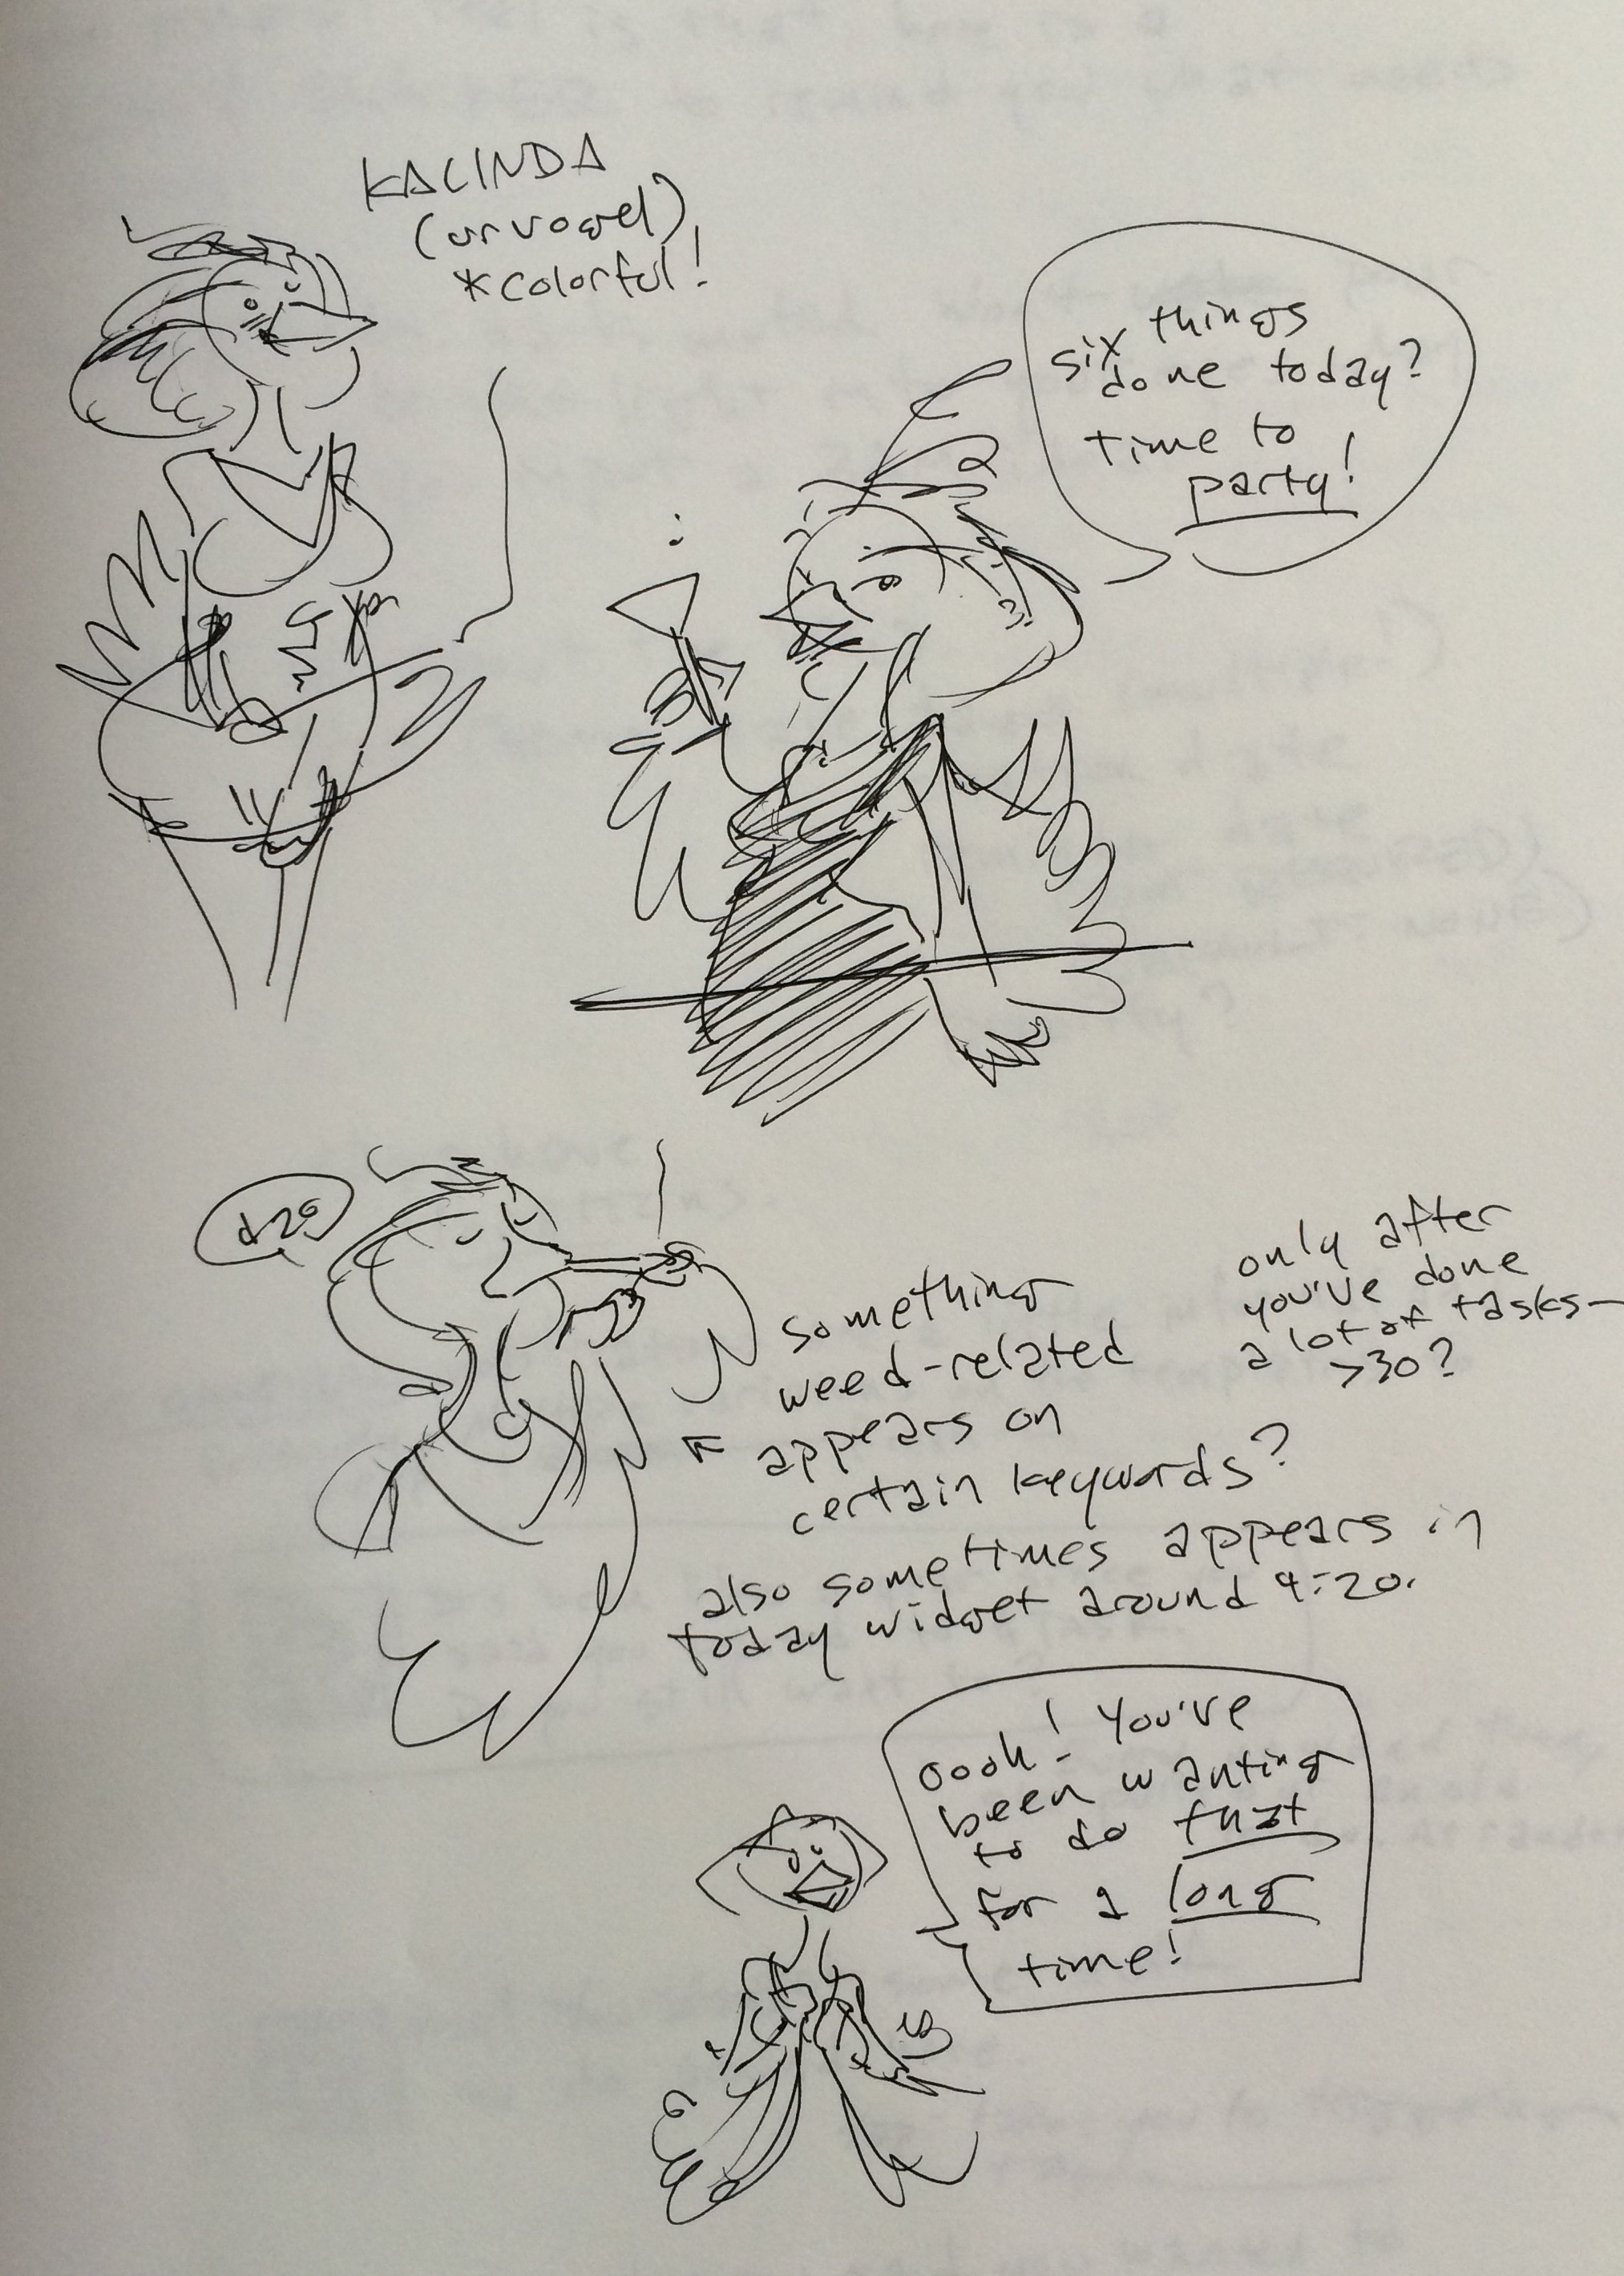 KALINDA
*colorful!
six things
done today?
time to
party!
something
weed-related
appears on
certain keywords?
also sometimes appears in
today widget around 4:20.
only after
you've done
a lot of tasks—
>30?
oooh! you've
been wanting
to do that
for a long
time!